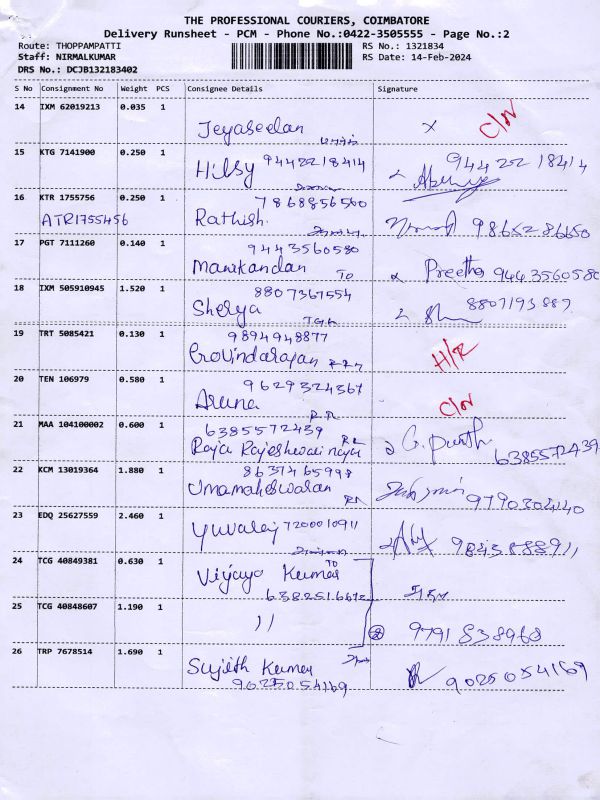 THE PROFESSIONAL COURIERS, COIMBATORE
Delivery Runsheet - PCM - Phone No.:0422-3505555 - Page No.:2
Route: THOPPAMPATTI RS No.: 1321834
Staff: NIRMALKUMAR RS Date: 14-Feb-2024
DRS No.: DCJB132183402
S No Consignment No Weight PCS Consignee Details Signature
14 IXM 62019213 0.035 1
Jeyaseelan x C/N
15 KTG 7141900 0.250 1
Hilsy 9442218414 9442218414
16 KTR 1755756 0.250 1 7868856560
ATR1755456 Rathish 9865286650
17 PGT 7111260 0.140 1 9443560580
Manikandan TO Preetha 9443560580
18 IXM 505910945 1.520 1 8807367554
Sherya 8807193887
19 TRT 5085421 0.130 1 9894948877
Govindarajan H/R
20 TEN 106979 0.580 1 9629324367
Aruna C/N
21 MAA 104100002 0.600 1 6385572439
Raja Rajeshwari 6385572439
22 KCM 13019364 1.880 1
Umamaheswaran 9790204140
23 EDQ 25627559 2.460 1
Yuvaraj 7200010911
24 TCG 40849381 0.630 1
Vijaya Kumar TO
25 TCG 40848607 1.190 1
" 9791838968
26 TRP 7678514 1.690 1
Sujith Kumar
9025054169 9025054169